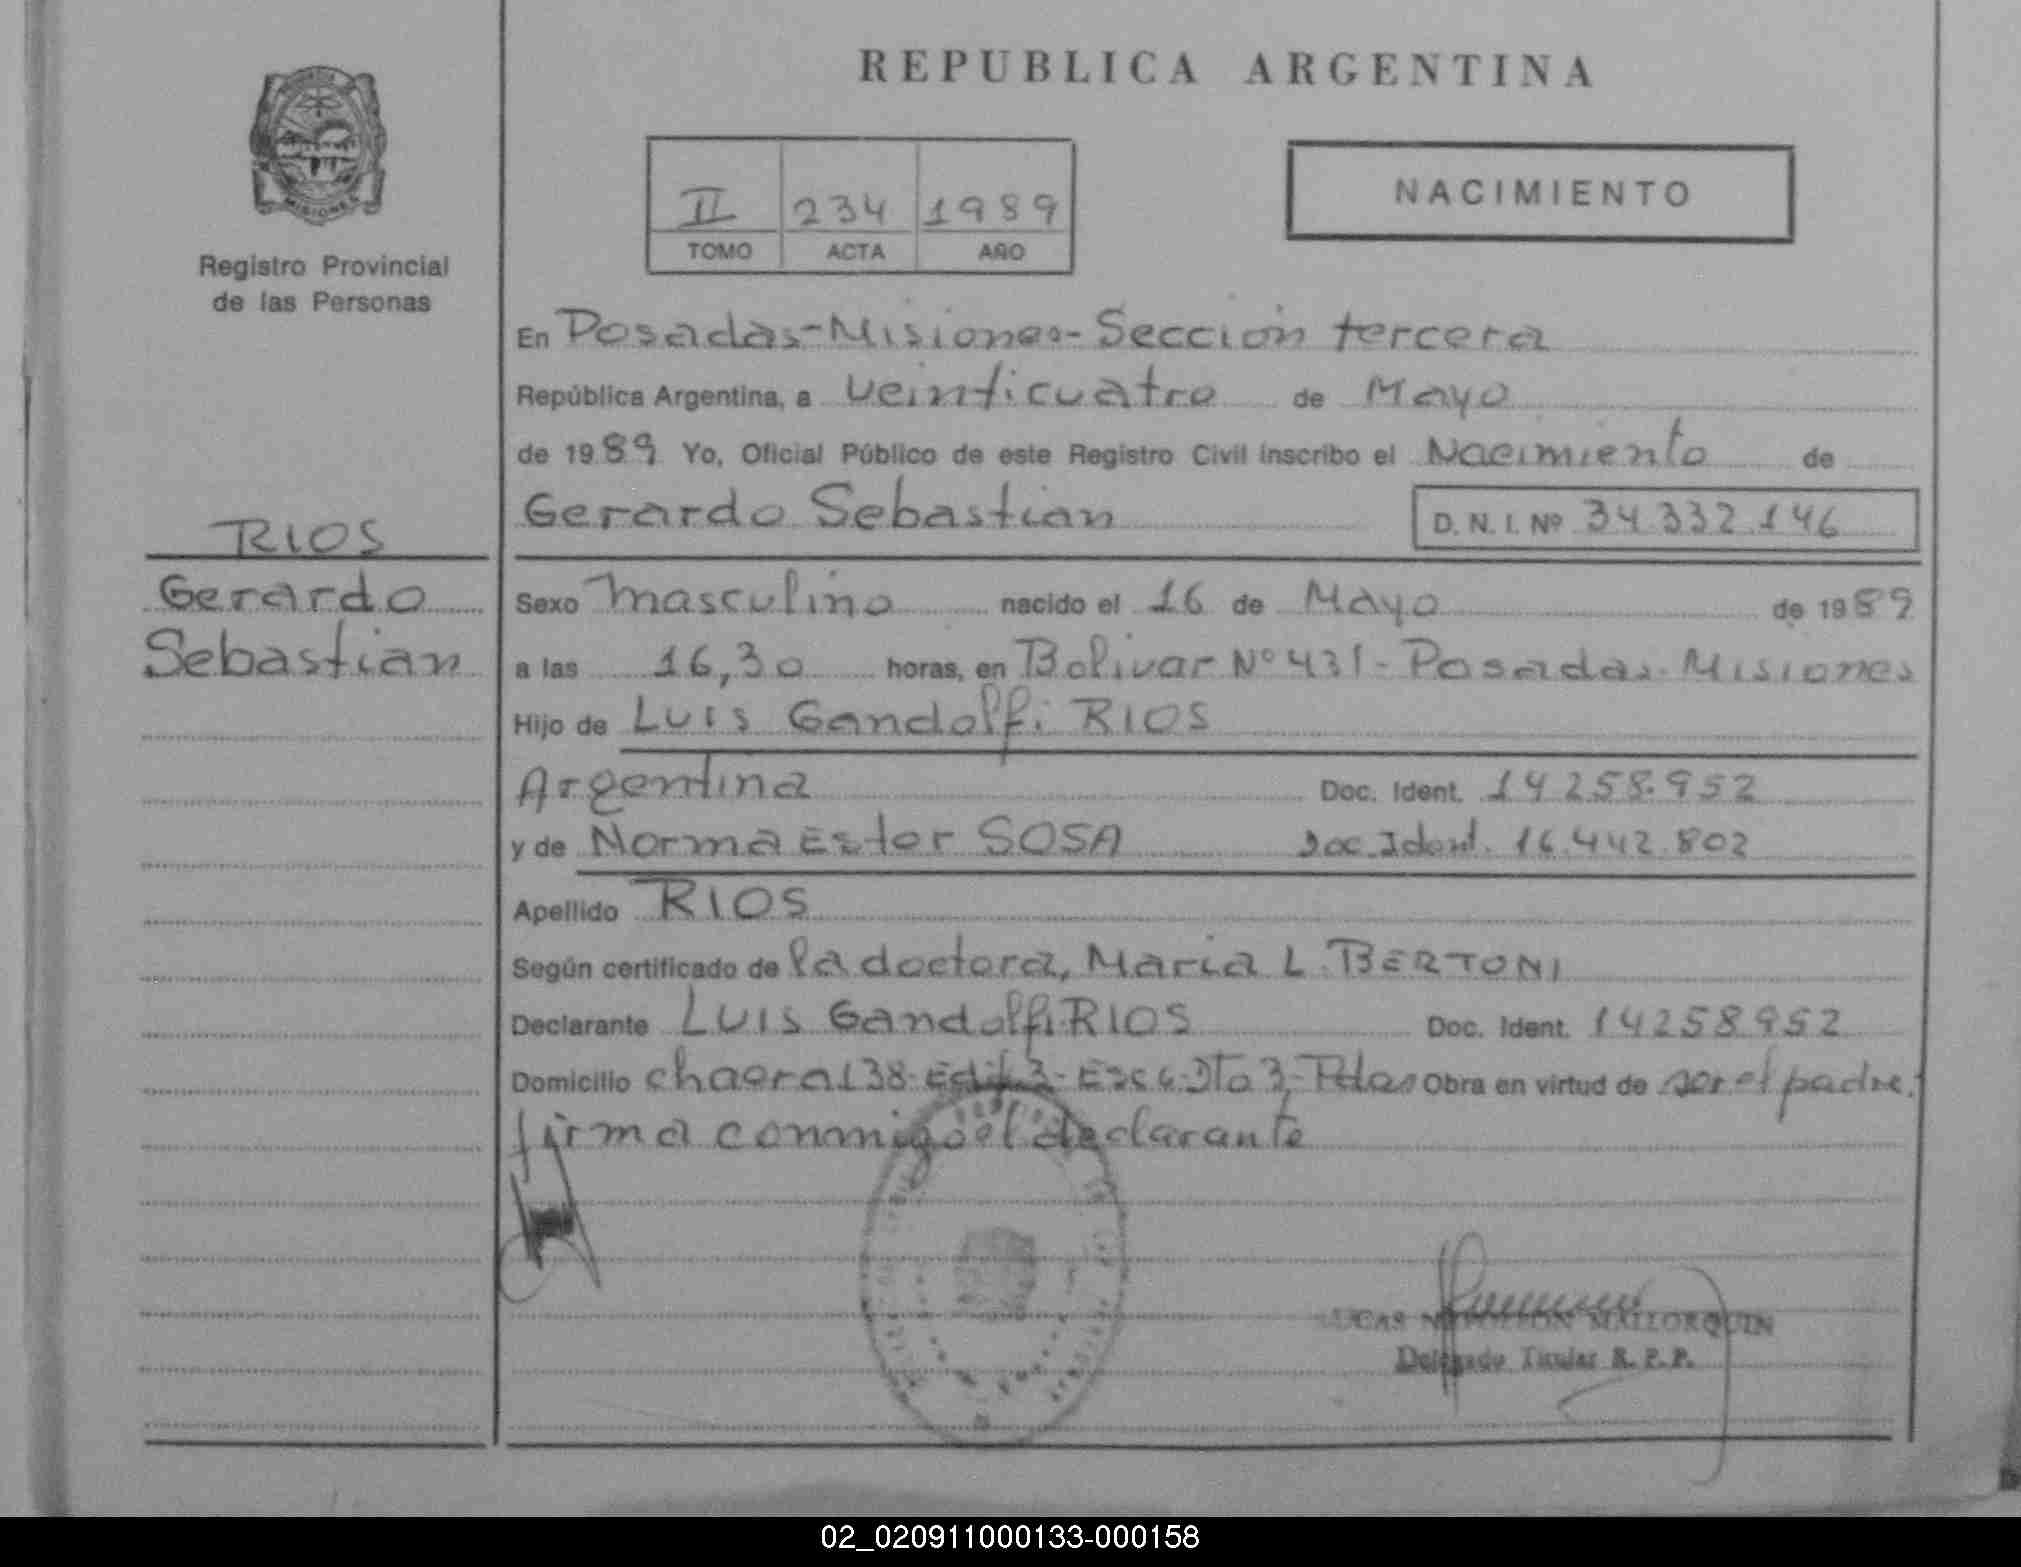 REPUBLICA ARGENTINA
MISIONES
Registro Provincial
de las Personas
II 234 1989
TOMO ACTA AÑO
NACIMIENTO
En Posadas-Misiones-Sección tercera
República Argentina, a veinticuatro de Mayo
de 1989 Yo, Oficial Público de este Registro Civil inscribo el Nacimiento de
Gerardo Sebastian D. N. I. Nº 34.332.146
RIOS
Gerardo
Sebastian
Sexo masculino nacido el 16 de Mayo de 1989
a las 16,30 horas, en Bolivar Nº 431-Posadas-Misiones
Hijo de Luis Gandolfi RIOS
Argentina Doc. Ident. 14258.952
y de Norma Ester SOSA Doc. Ident. 16.442.802
Apellido RIOS
Según certificado de la doctora, Maria L. BERTONI
Declarante LUIS Gandolfi RIOS Doc. Ident. 14258952
Domicilio chacra 138-Edif 3- Dto 3,-Pdas Obra en virtud de ser el padre.
firma conmigo el declarante
LUCAS NAPOLEON MALLORQUIN
Delegado Titular R. P. P.
02_020911000133-000158